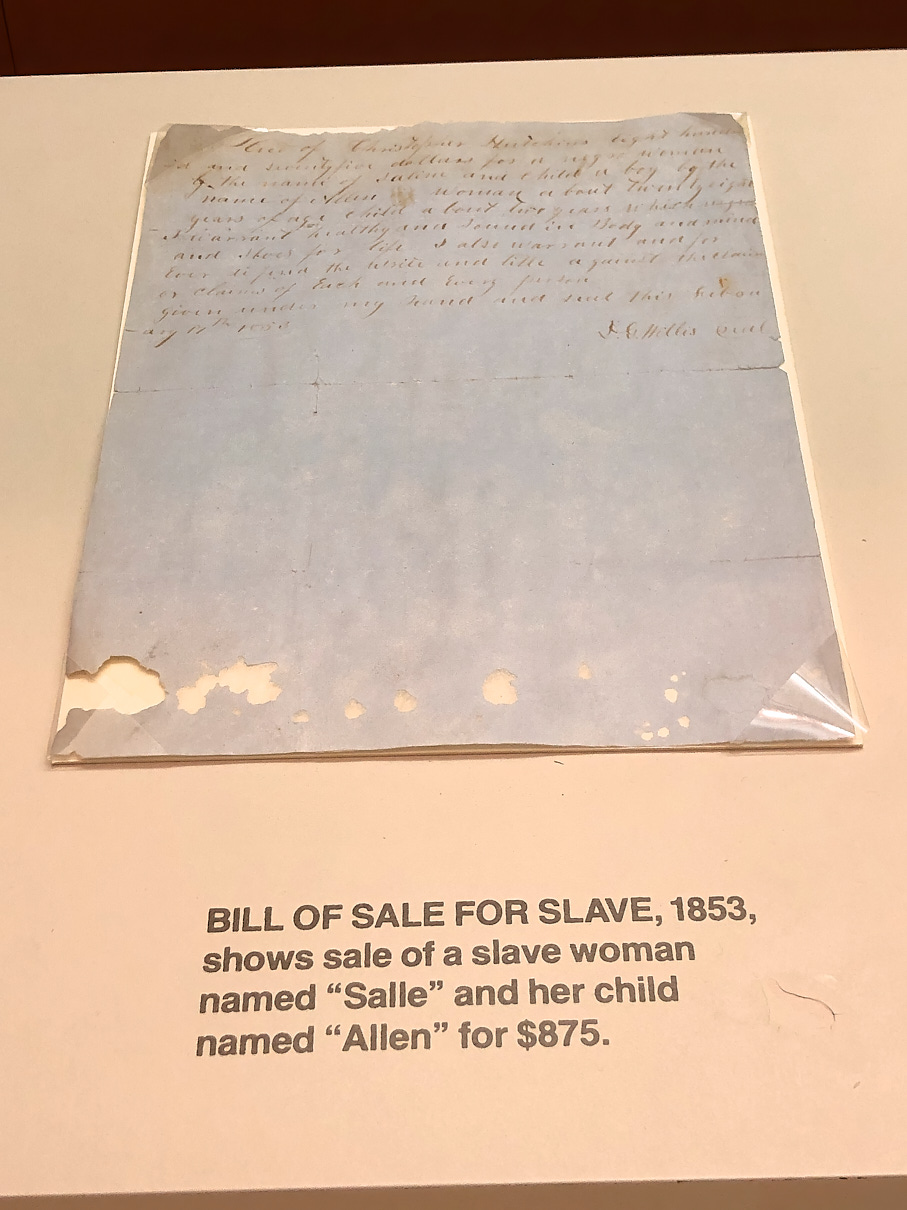 of Christopher Hutchins Eight hund
and seventyfive dollars for a negro woman
by the name of and Child a boy by the
name of Allen Woman about Twentyeight
years of age Child about two years which
I warrant healthy and Sound in Body and mind
and for life I also warrant and for
Ever the and title against the
or claims of Each and Every person
given under my hand and seal this
ary 17th 1853
Seal
BILL OF SALE FOR SLAVE, 1853,
shows sale of a slave woman
named “Salle” and her child
named “Allen” for $875.